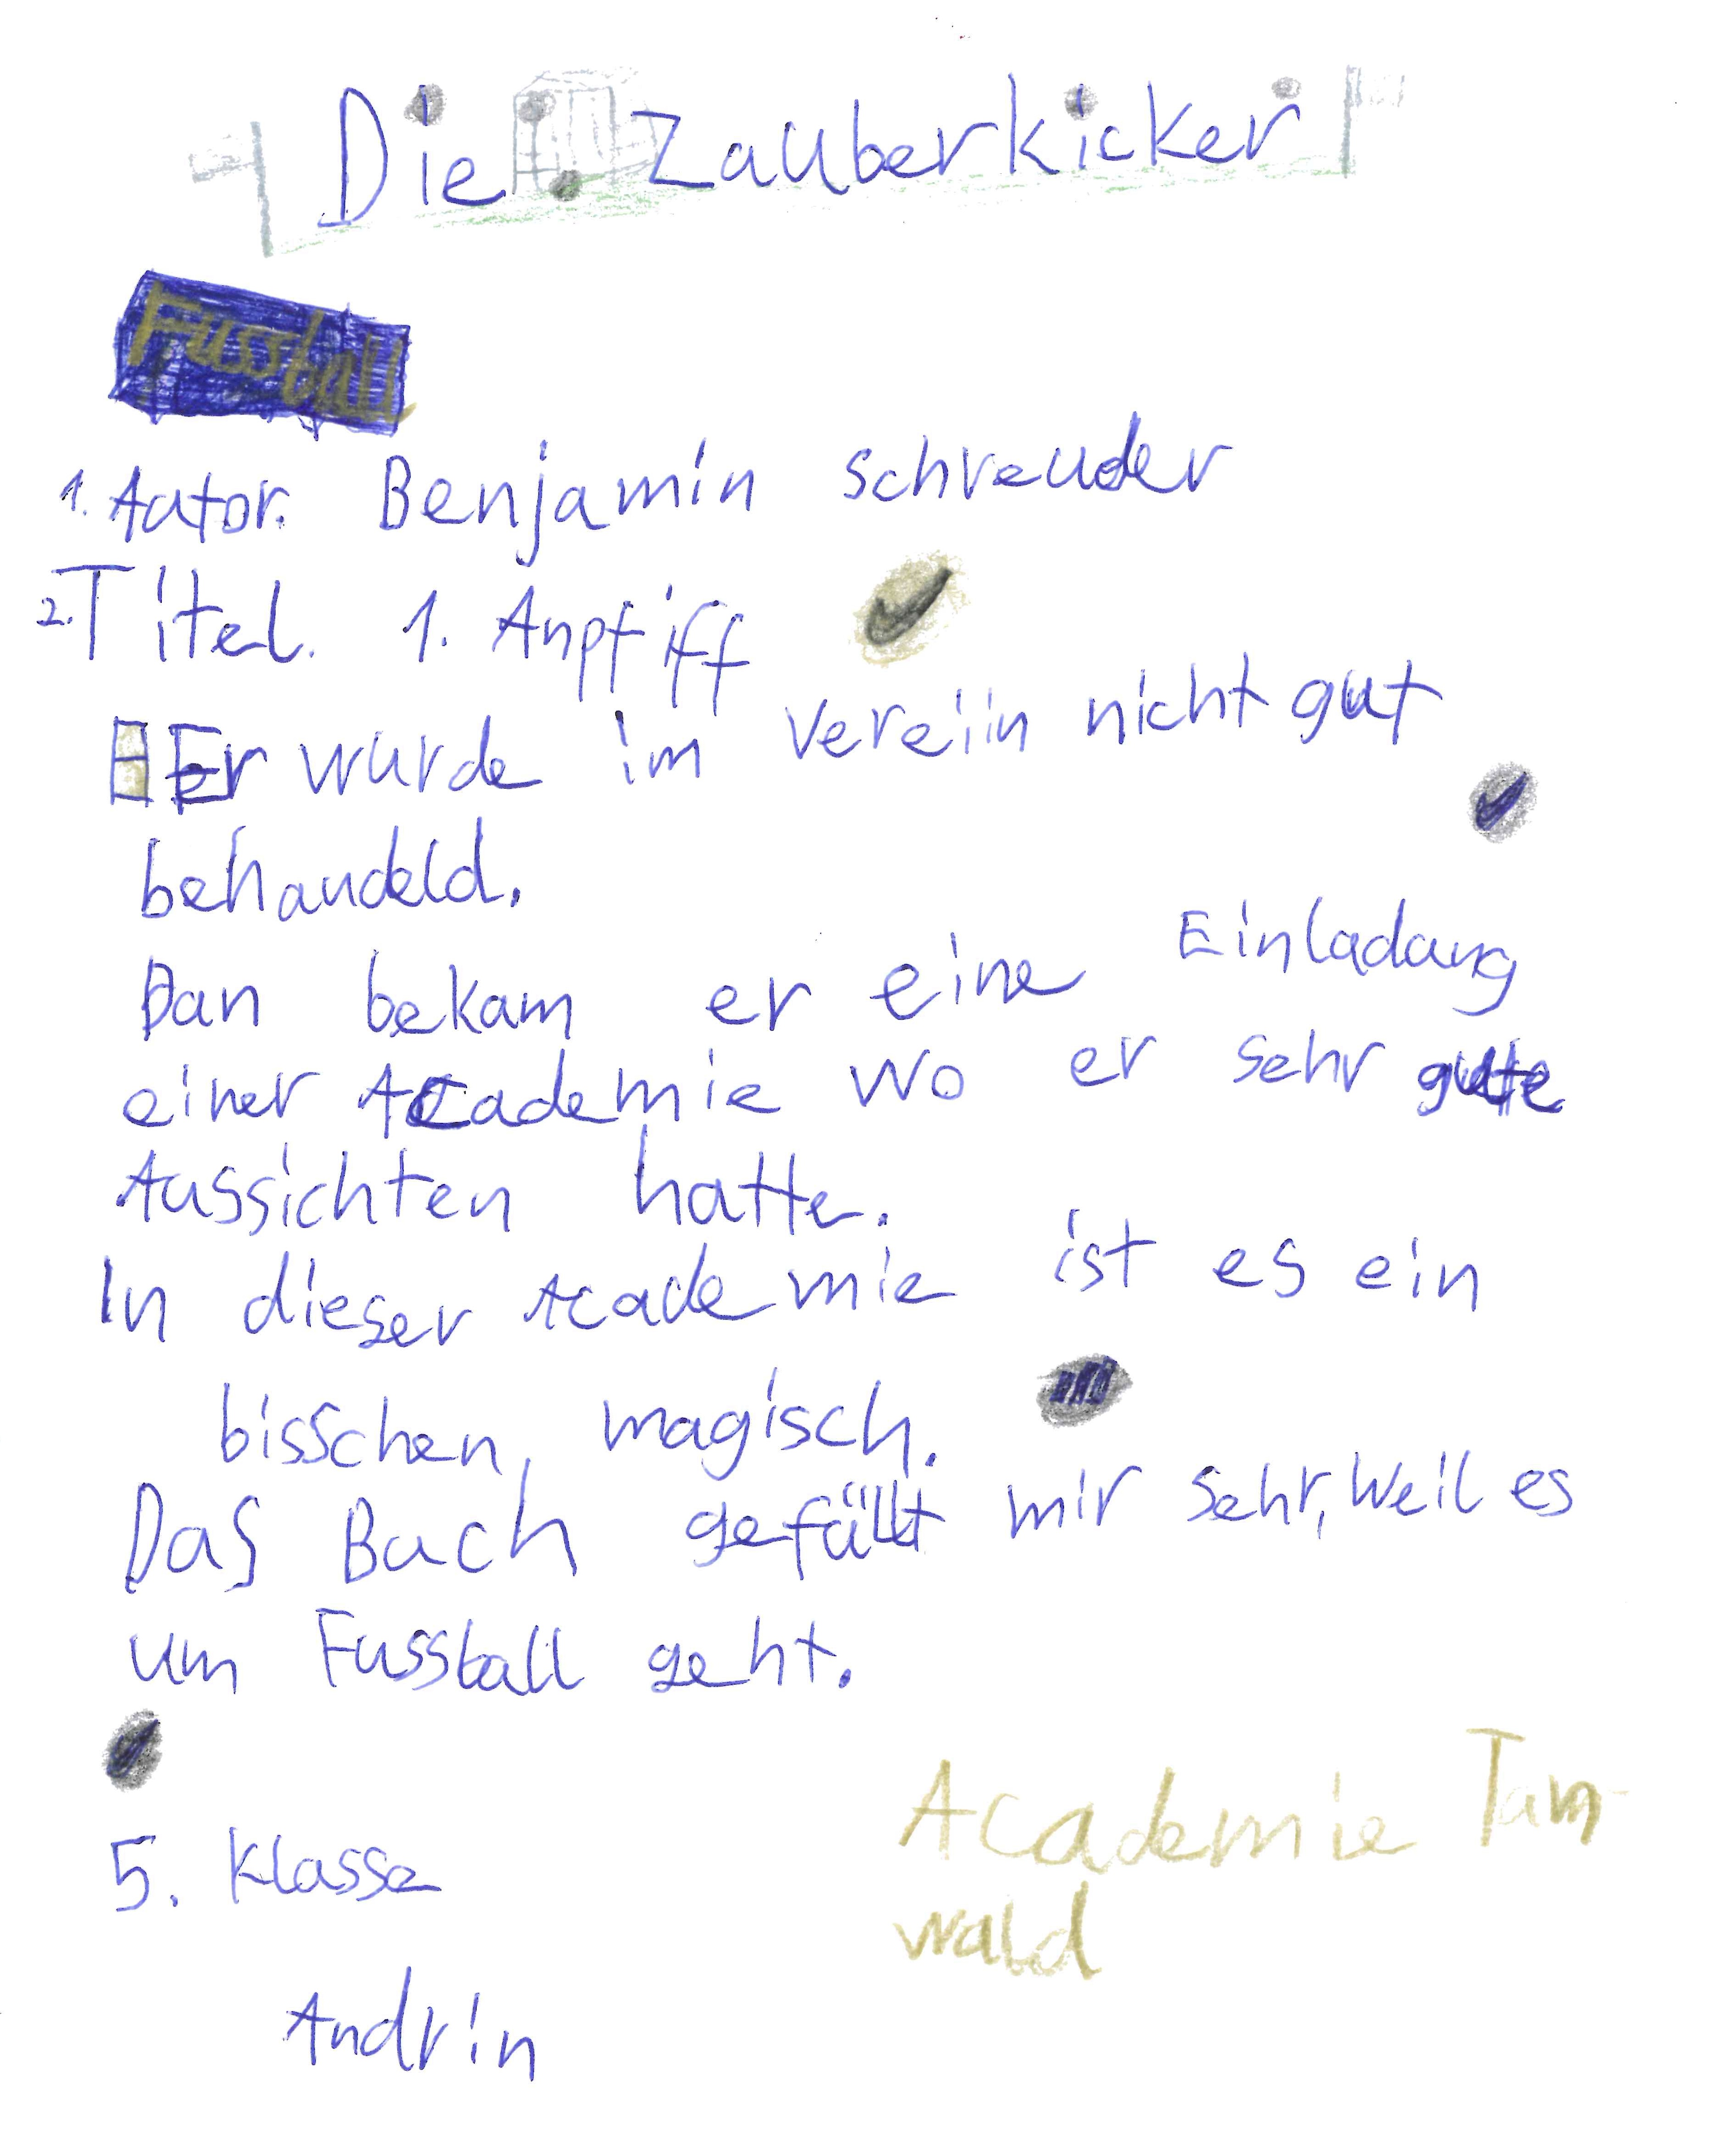 Die Zauberkicker
Fussball
1. Autor. Benjamin schreuder
2. Titel. 1. Anpfiff
Er wurde im Vereiin nicht gut
behandeld.
Dan bekam er eine Einladung
einer Academie wo er sehr gute
Aussichten hatte.
In dieser Academie ist es ein
bisschen magisch.
Das Buch gefällt mir sehr, weil es
um Fussball geht.
5. Klasse
Academie Tann-
wald
Andrin